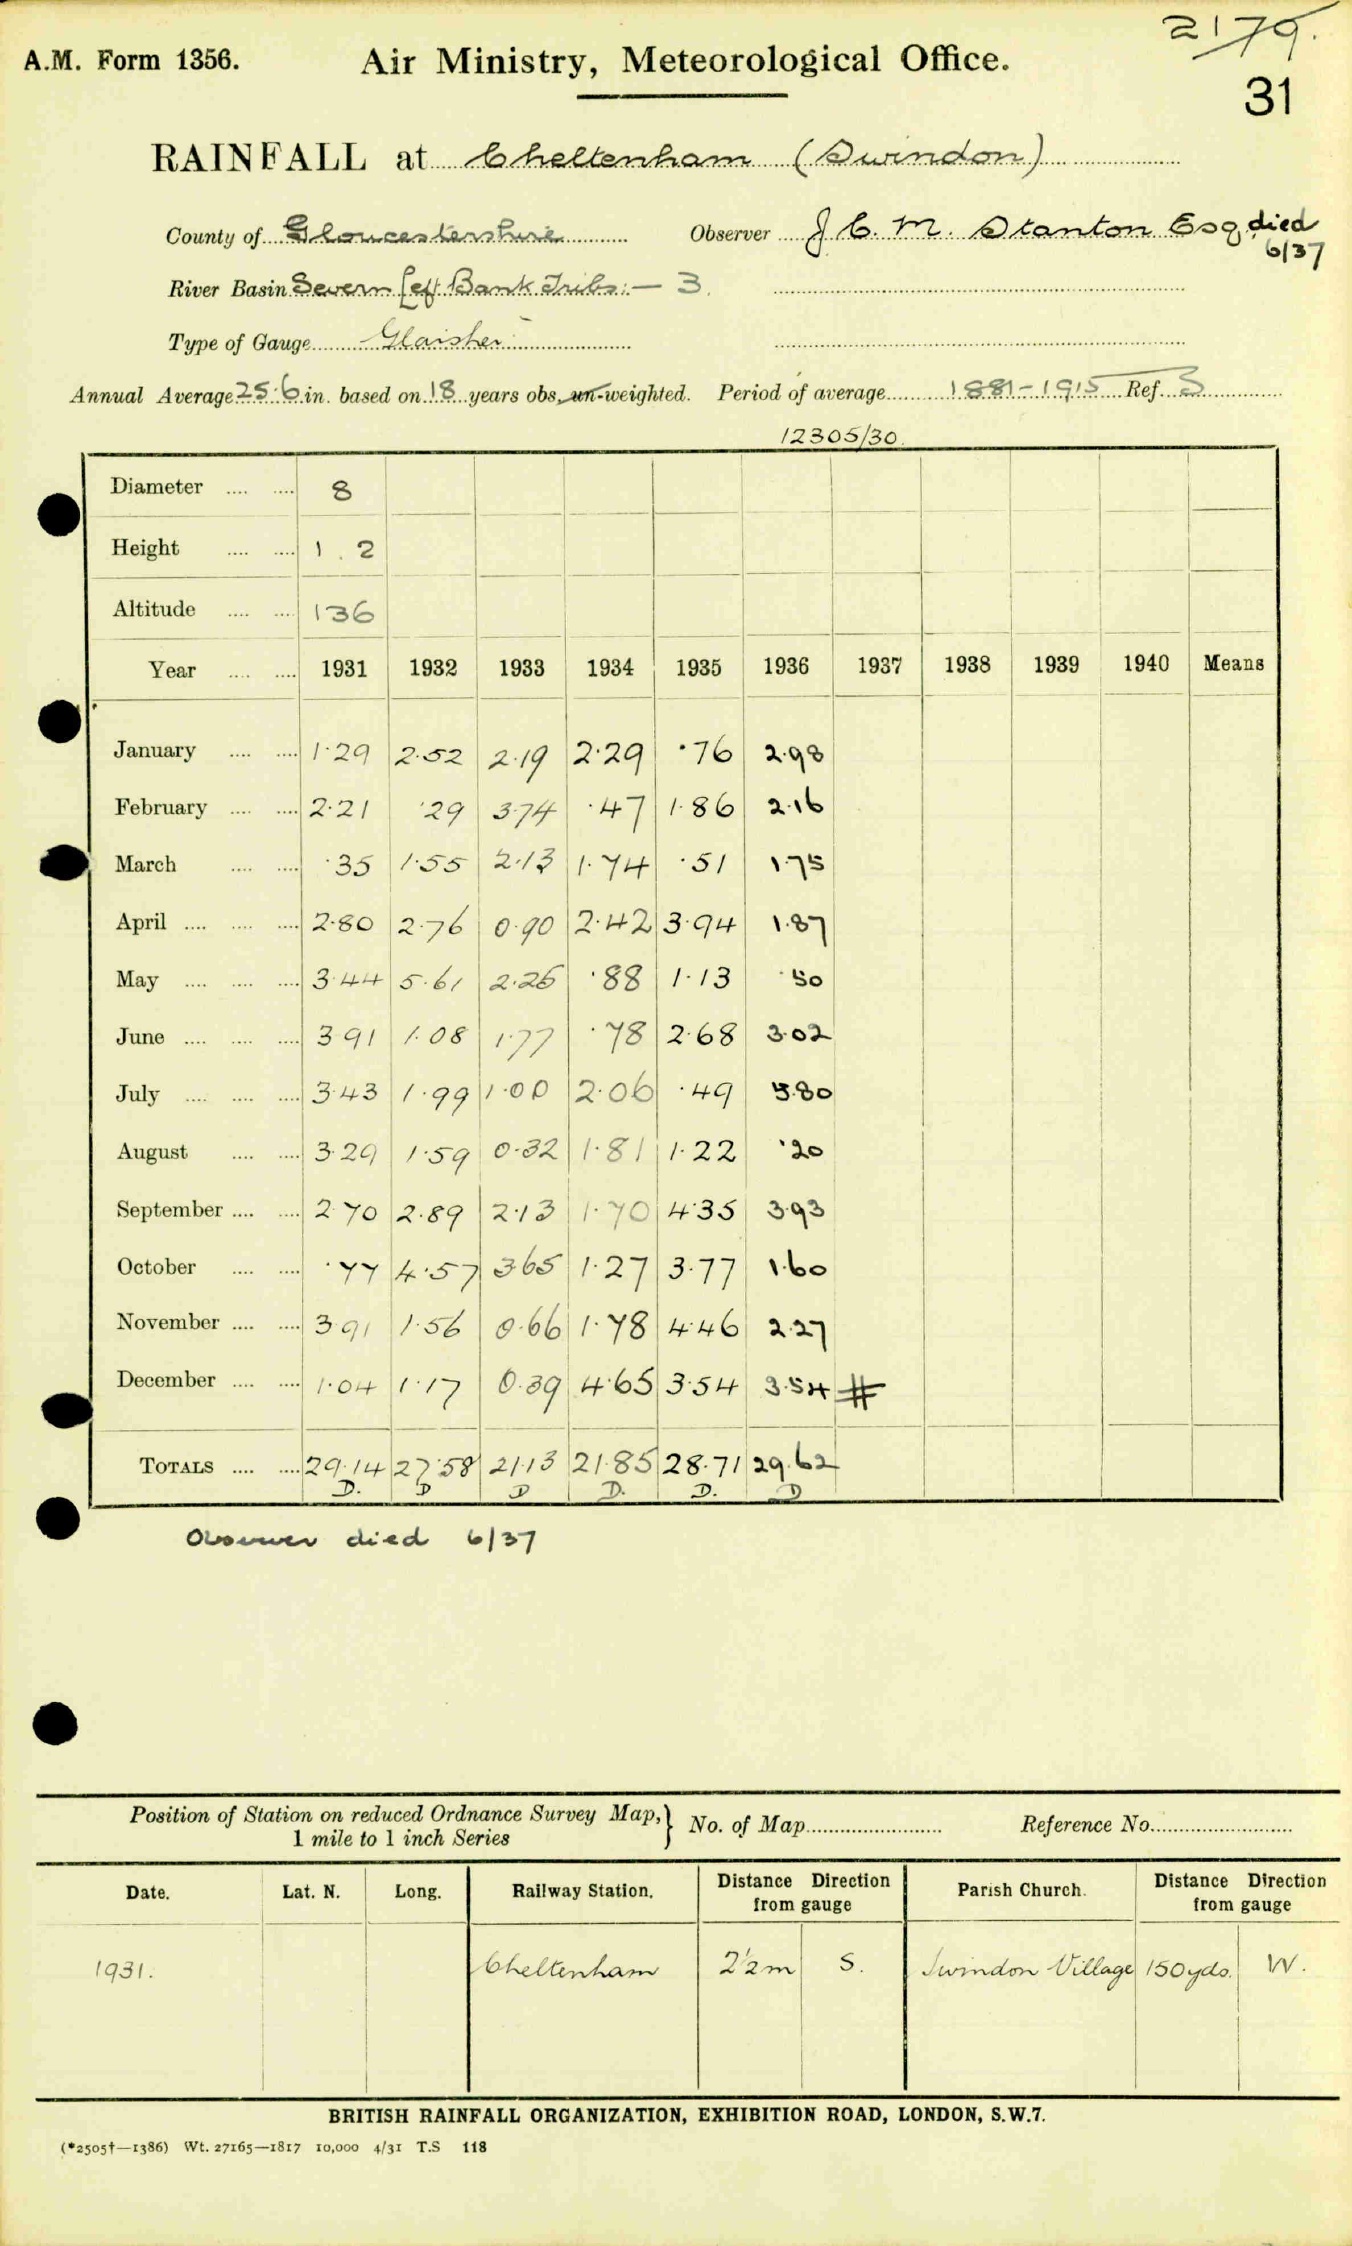 2179.
A.M. Form 1356. Air Ministry, Meteorological Office.
31
RAINFALL at Cheltenham (Swindon)
County of Gloucestershire Observer J C. M. Stanton Esq died 6/37
River Basin Severn Left Bank Tribs:— 3.
Type of Gauge Glaisher
Annual Average 25.6 in. based on 18 years obs. un-weighted. Period of average 1881-1915 Ref. 3
12305/30.
Diameter .... .... 8
Height .... .... 1 . 2
Altitude .... .... 136
Year .... .... 1931 1932 1933 1934 1935 1936 1937 1938 1939 1940 Means
January .... .... 1.29 2.52 2.19 2.29 .76 2.98
February .... .... 2.21 .29 3.74 .47 1.86 2.16
March .... .... .35 1.55 2.13 1.74 .51 1.75
April .... .... .... 2.80 2.76 0.90 2.42 3.94 1.87
May .... .... .... 3.44 5.61 2.25 .88 1.13 .50
June .... .... .... 3.91 1.08 1.77 .78 2.68 3.02
July .... .... .... 3.43 1.99 1.00 2.06 .49 5.80
August .... .... 3.29 1.59 0.32 1.81 1.22 .20
September .... .... 2.70 2.89 2.13 1.70 4.35 3.93
October .... .... .77 4.57 3.65 1.27 3.77 1.60
November .... .... 3.91 1.56 0.66 1.78 4.46 2.27
December .... .... 1.04 1.17 0.39 4.65 3.54 3.54 #
TOTALS .... .... 29.14 27.58 21.13 21.85 28.71 29.62
D. D D D. D. D
Observer died 6/37
Position of Station on reduced Ordnance Survey Map,} No. of Map Reference No.
1 mile to 1 inch Series
Date. Lat. N. Long. Railway Station. Distance Direction from gauge Parish Church. Distance Direction from gauge
1931. Cheltenham 2½m S. Swindon Village 150yds. W.
BRITISH RAINFALL ORGANIZATION, EXHIBITION ROAD, LONDON, S.W.7.
(*2505†—1386) Wt. 27165—1817 10,000 4/31 T.S 118